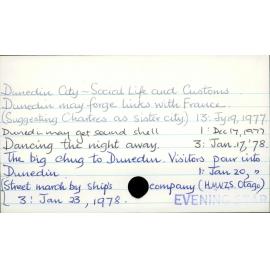 Dunedin City - Social Life and Customs
Dunedin may forge links with France.
(Suggesting Chartres as sister city) 13: Jy 19, 1977.
Dunedin may get sound shell 1: Dec 17, 1977
Dancing the night away. 3: Jan. 17, '78.
The big chug to Dunedin. Visitors pour into
Dunedin. 1: Jan 20, "
[Street march by ship's company (H.M.N.Z.S. Otago)
3: Jan 23, 1978.
EVENING STAR